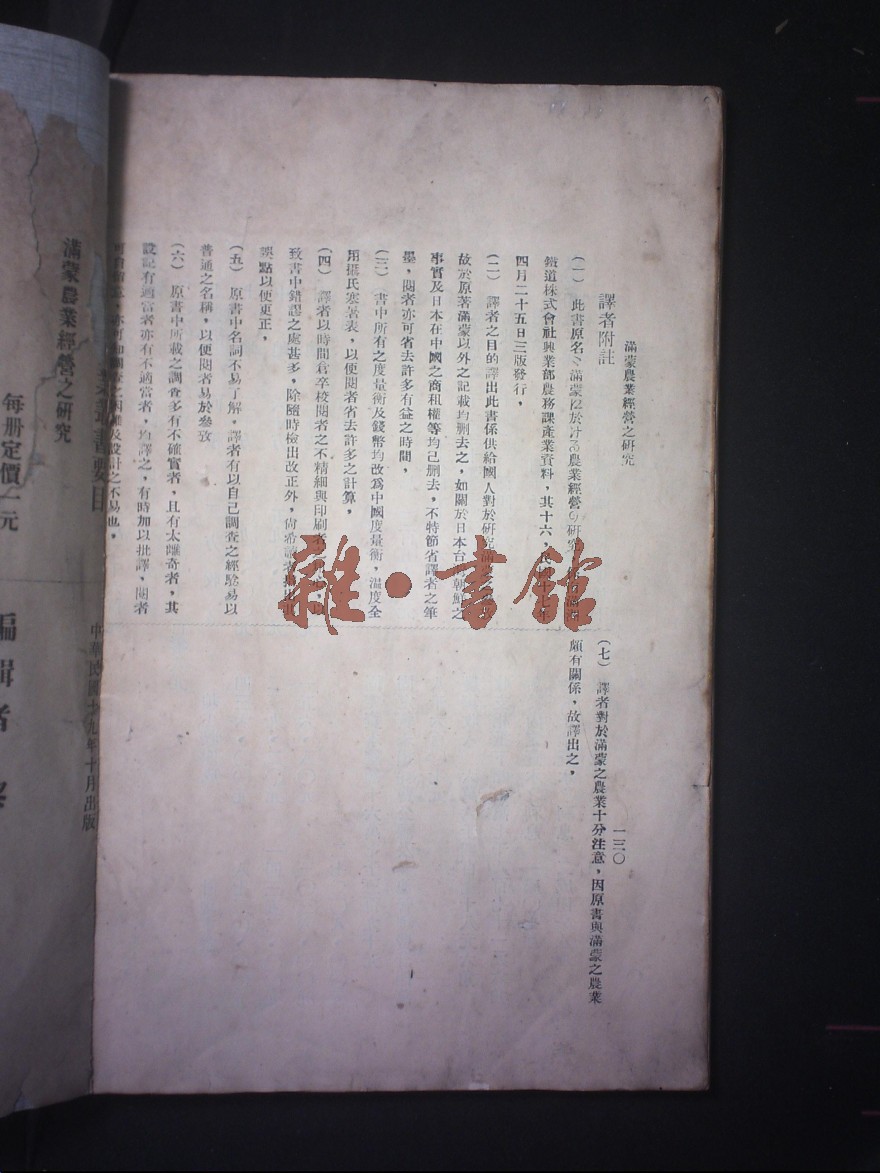 滿蒙農業經營之研究
一三〇
譯者附註
(一) 此書原名滿蒙於農業經營研究
鐵道株式會社興業部農務課產業資料，其十六，
四月二十五日三版發行，
(二) 譯者之目的譯出此書係供給國人對於研究滿
故於原著滿蒙以外之記載均刪去之，如關於日本台朝鮮之
事實及日本在中國之商租權等均已刪去，不特節省譯者之筆
墨，閱者亦可省去許多有益之時間，
(三) 書中所有之度量衡及錢幣均改爲中國度量衡，溫度全
用攝氏寒暑表，以便閱者省去許多之計算，
(四) 譯者以時間倉卒校閱者之不精細與印刷者
致書中錯謬之處甚多，除隨時檢出改正外，尙希
誤點以便更正，
(五) 原書中名詞不易了解，譯者有以自己調查之經驗易以
普通之名稱，以便閱者易於參攷
(六) 原書中所載之調查多有不確實者，且有太離奇者，其
設記有適當者亦有不適當者，均譯之，有時加以批譯，閱者
及設計之不易也，
(七) 譯者對於滿蒙之農業十分注意，因原書與滿蒙之農業
頗有關係，故譯出之，
雜・書館
中華民國十九年十月出版
滿蒙農業經營之研究
每册定價一元
編輯者